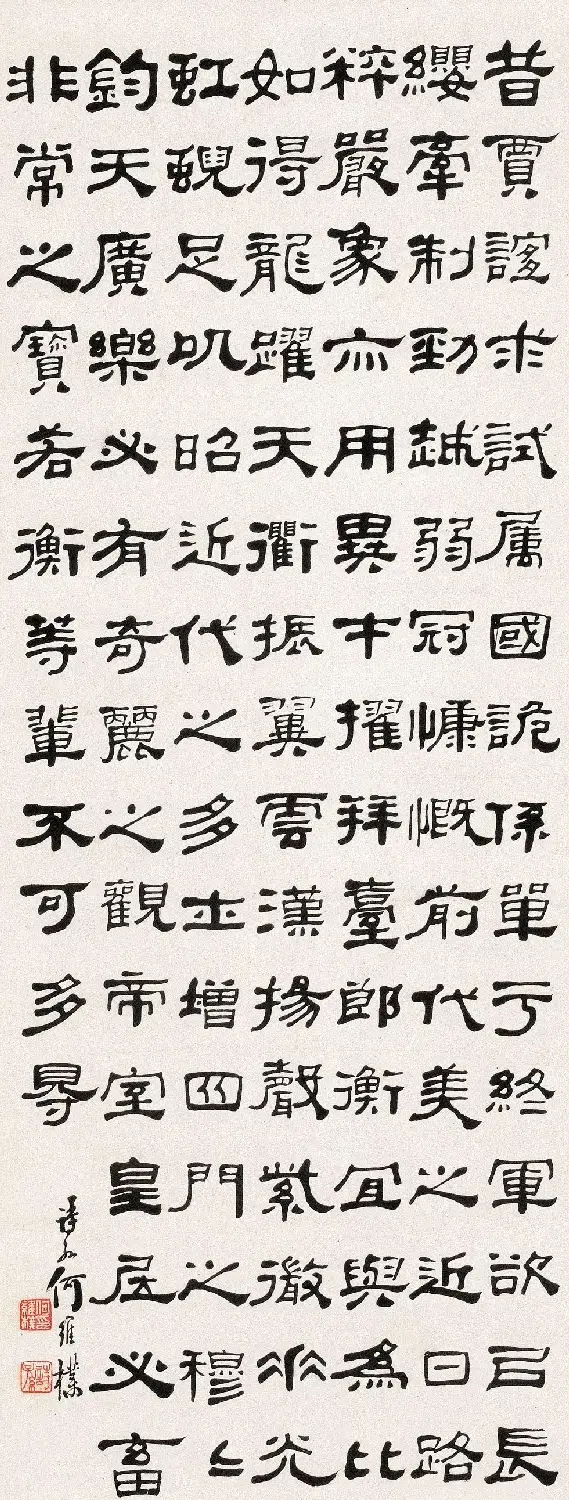 昔賈誼求試屬國詭係單于終軍欲以長
纓牽制勁越弱冠慷慨前代美之近日路
粹嚴象亦用異才擢拜臺郎衡宜與為比
如得龍躍天衢振翼雲漢揚聲紫微垂光
虹蜺足以昭近代之多士增四門之穆〻
鈞天廣樂必有奇麗之觀帝室皇居必畜
非常之寶若衡等輩不可多得
詩孫何維樸